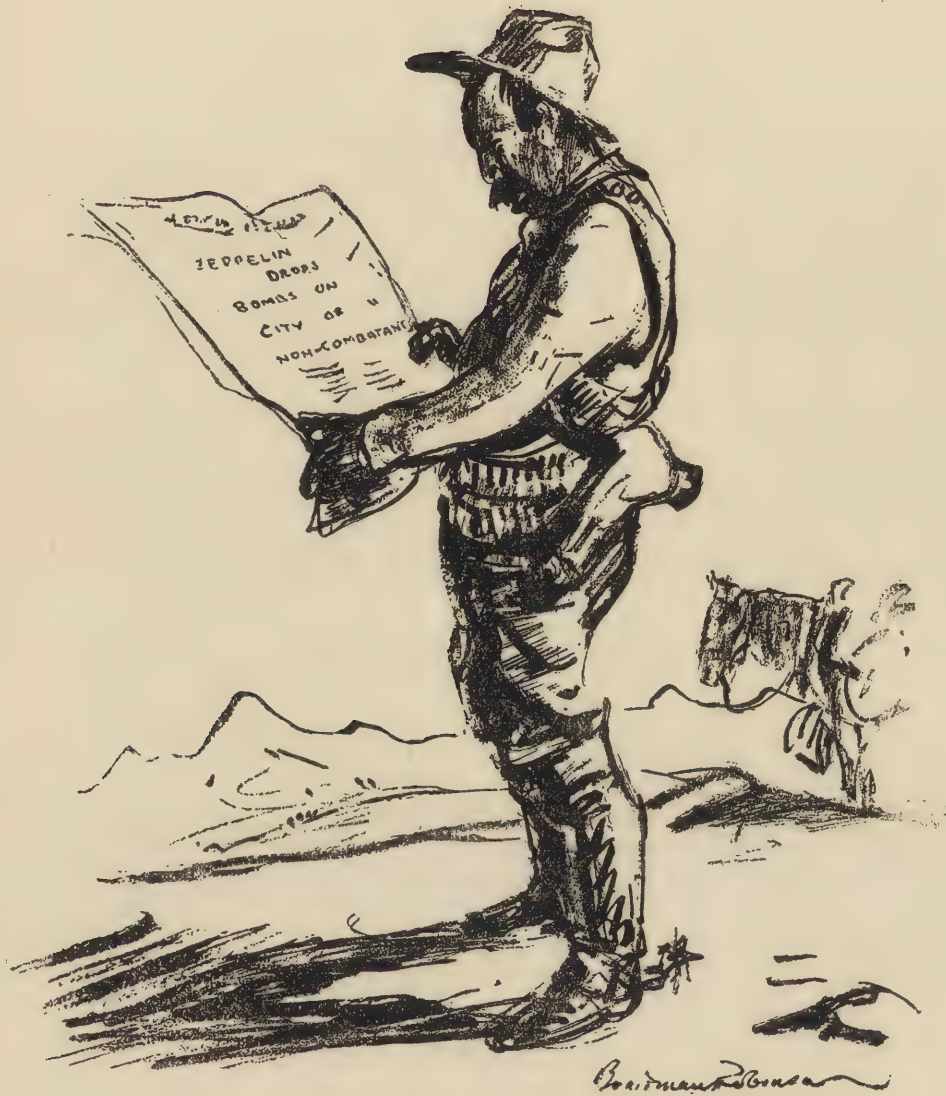 ZEPPELIN
DROPS
BOMBS ON
CITY OF
NON-COMBATANTS
Boardman Robinson